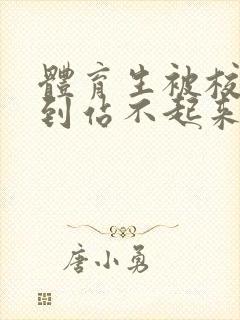 體育生被校
到佔不起來
唐小勇